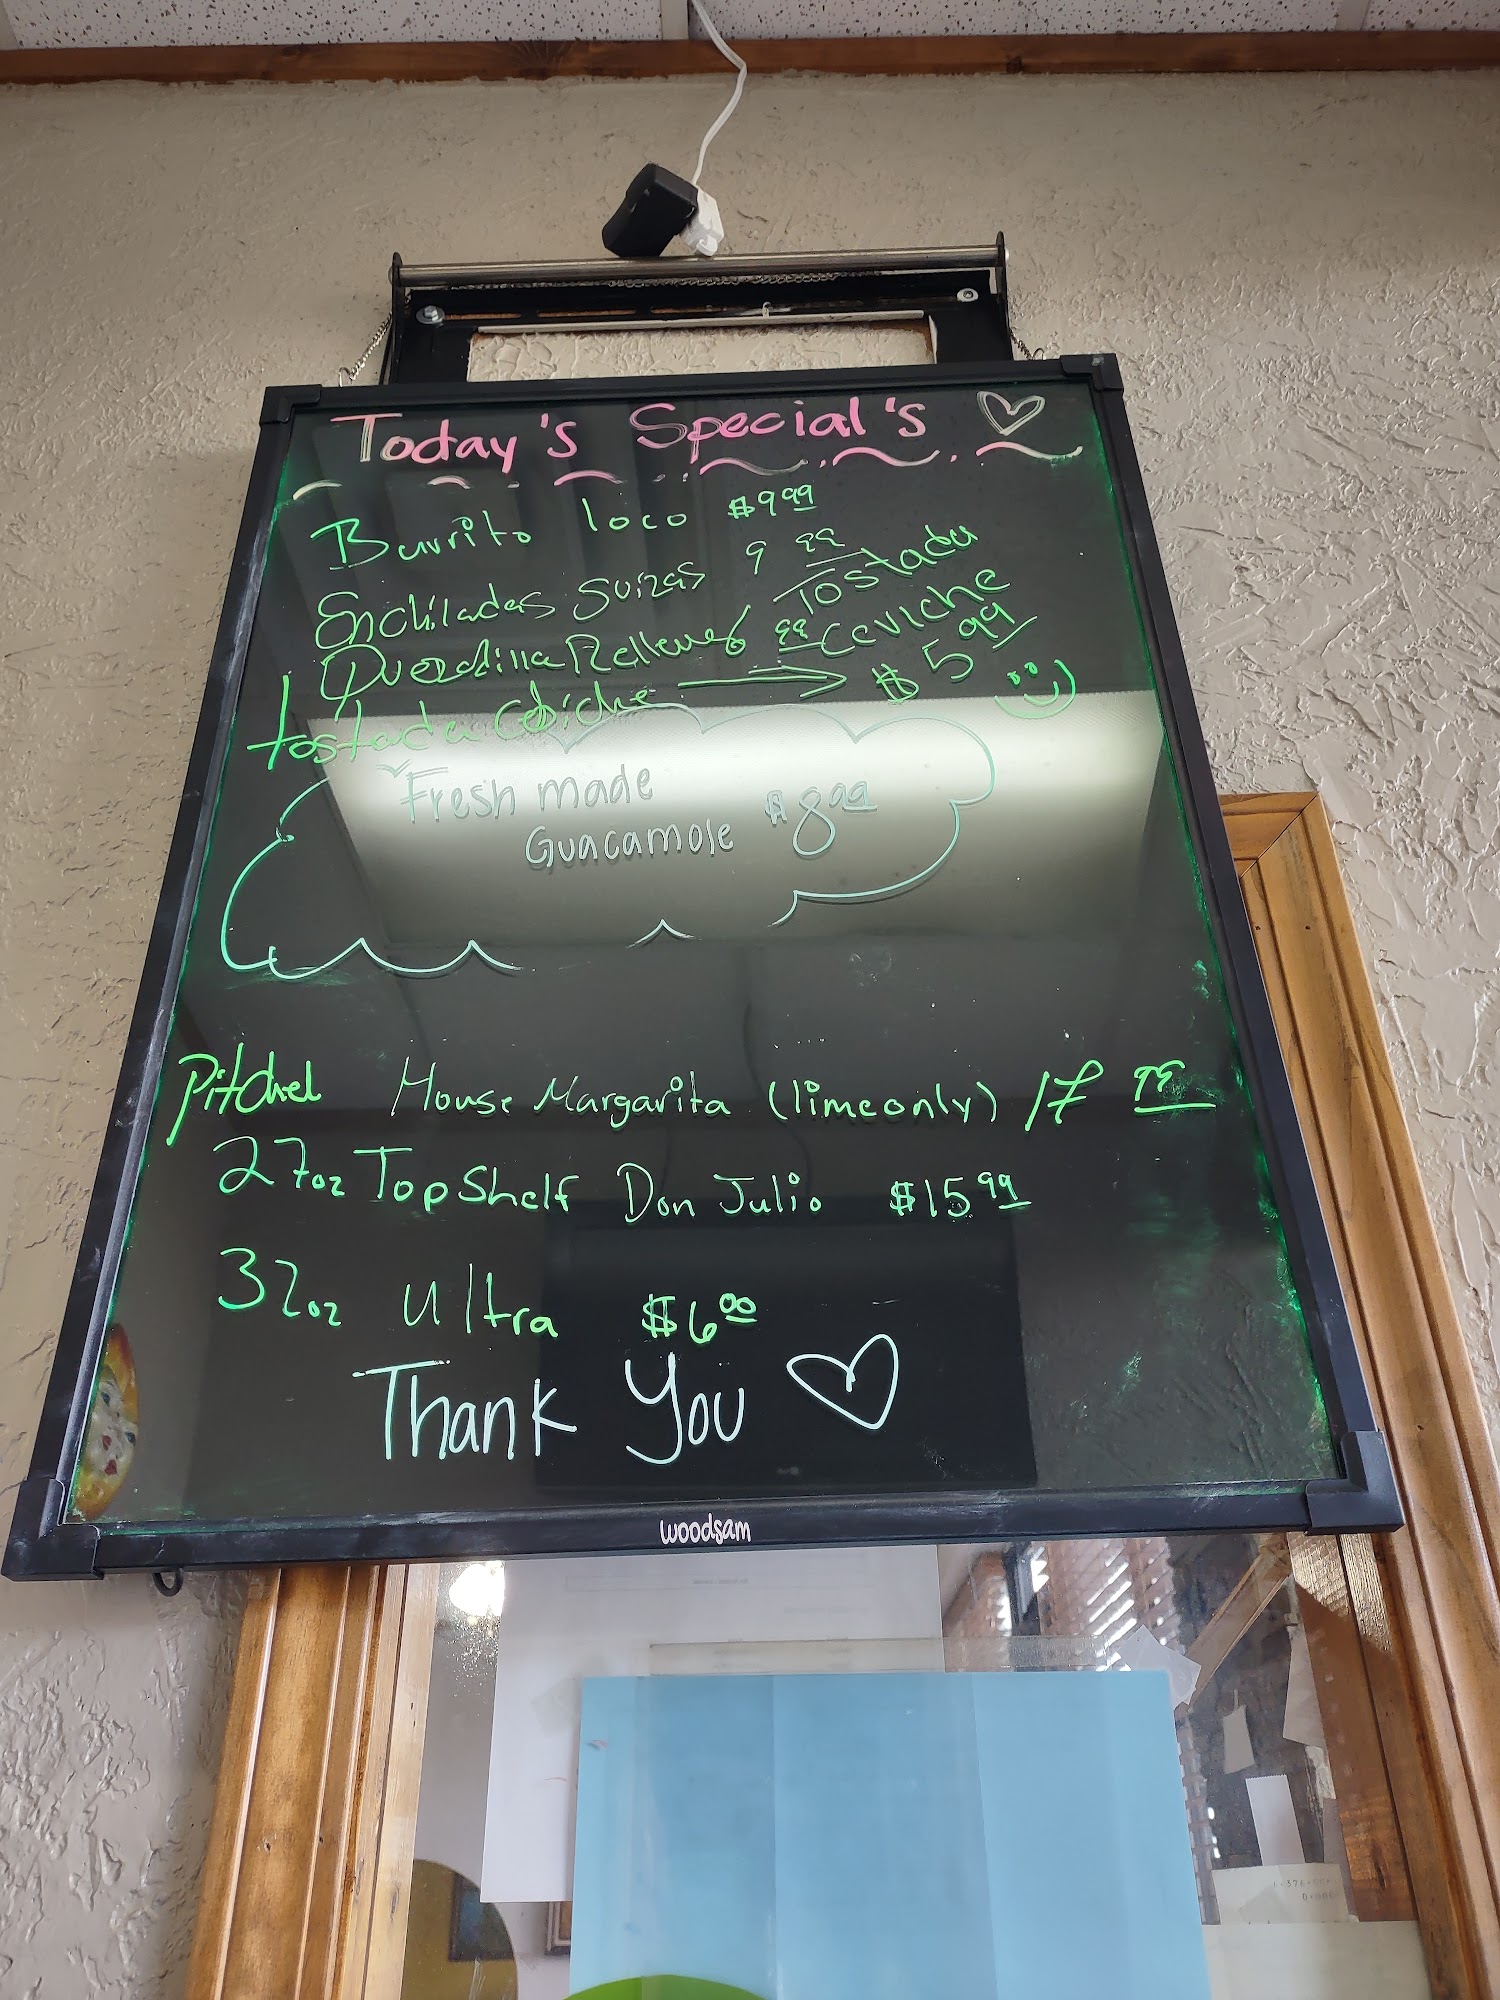 Today's Special's
Burrito loco $9.99
Enchiladas suizas 9.99
Quesadilla Rellenes .99 Tostada
tostada cebiche → ceviche
$5.99
Fresh made
Guacamole $8.99
Pitcher House Margarita (lime only) 17.99
27oz Top Shelf Don Julio $15.99
32oz Ultra $6.00
Thank You
woodsam